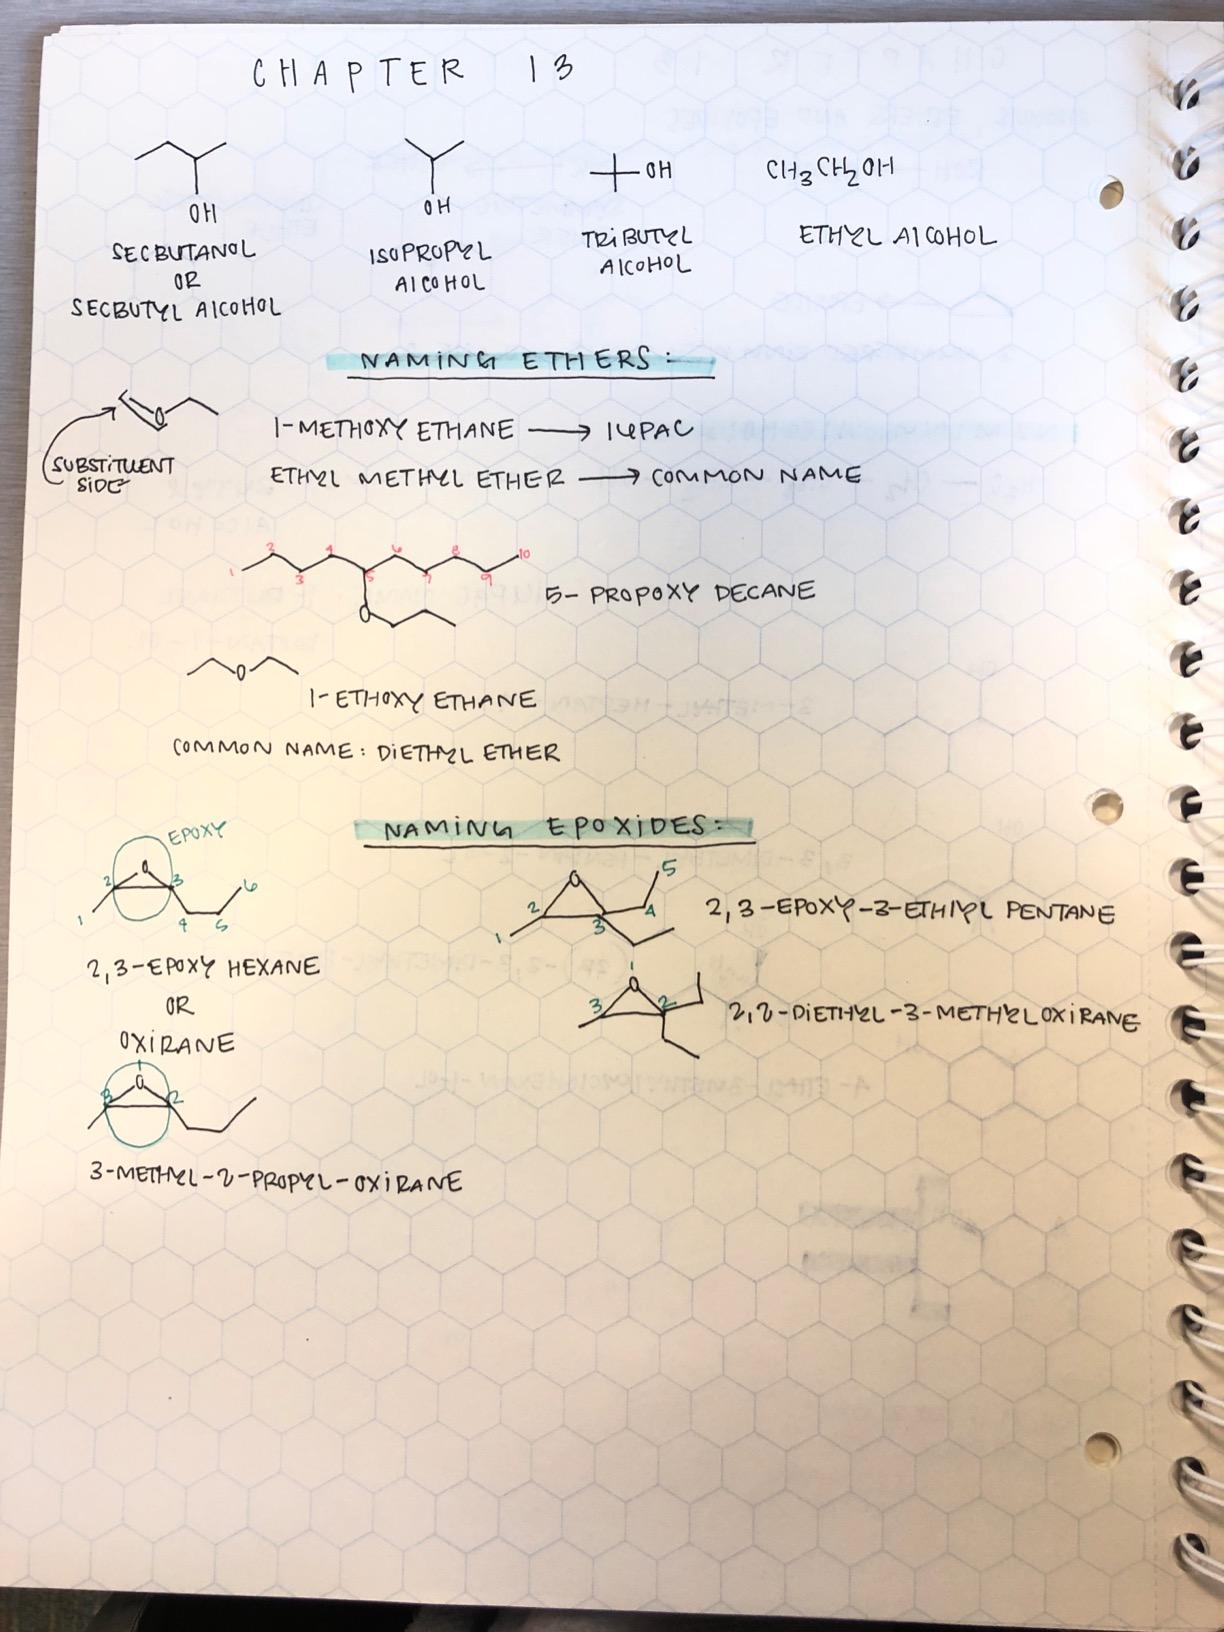 CHAPTER 13
OH
OH
OH
CH3CH2OH
SECBUTANOL
OR
SECBUTYL AlCOHOL
ISOPROPYL
AlCOHOL
TRiBUTYL
AlCOHOL
ETHYL AlCOHOL
NAMING ETHERS:
O
SUBSTiTUENT
SiDE
1-METHOXY ETHANE → IUPAC
ETHYL METHYL ETHER → COMMON NAME
1 2 3 4 5 6 7 8 9 10
O
5- PROPOXY DECANE
O
1-ETHOXY ETHANE
COMMON NAME: DiETHYL ETHER
NAMING EPOXiDES:
EPOXY
O
1 2 3 4 5 6
2,3-EPOXY HEXANE
OR
OXiRANE
O
1 2 3
3-METHYL-2-PROPYL-OXiRANE
O
1 2 3 4 5
2,3-EPOXY-3-ETHIYL PENTANE
O
1 2 3
2,2-DiETHYL-3-METHYLOXiRANE